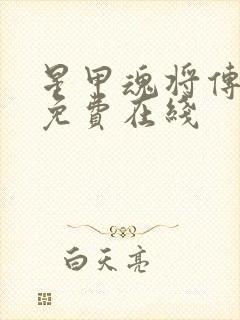 星甲魂将傳
免費在綫
白天亮